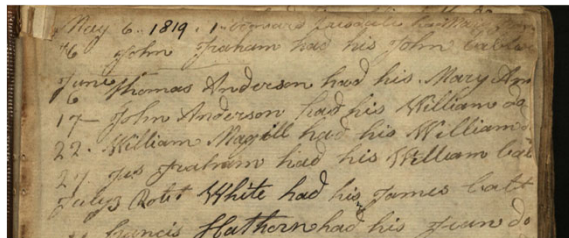 May 6. 1819. 1-
16 John Graham had his John
June 6 Thomas Anderson had his Mary An
17 John Anderson had his William do
22. William Magill had his William
27 Jas Graham had his William bat
July 3 Robt White had his James bapt
Francis Hathorn had his Jean do